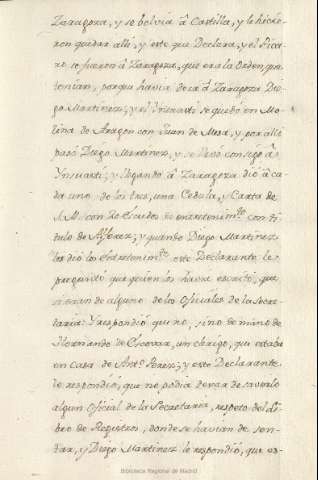 Zaragoza, y se bolvia â Castilla, y le hicie-
ron quedar alli, y este que Declara, y el Pica-
ro se fueron â Zaragoza, que era la Orden que
tenian, porque havia de ir â Zaragoza Die-
go Martinez; y el se quedó en Mo-
lina de Aragon con Juan de Mesa, y por alli
pasó Diego Martinez, y se llevó consigo â
Ynsuasti; y llegando â Zaragoza dió â ca-
da uno de los tres, una Cedula, y Carta de
S.M. con 20 Escudos de entretenim.to con ti-
tulo de Alferez; y quando Diego Martinez
les dió los Entretenim.tos este Declarante le
preguntó que quien los havia escrito, que
si eran de alguno de los Oficiales de la Secre-
taria? Y respondió que no, sino de mano de
Hernando de Escovar, un clerigo, que estaba
en Casa de Ant.o Perez; y este Declarante
le respondió, que no podia dexar de saverlo
algun Oficial de la Secretaria, respeto del Li-
bro de Registros, donde se havian de sen-
tar, y Diego Martinez le respondió, que es-
Biblioteca Regional de Madrid